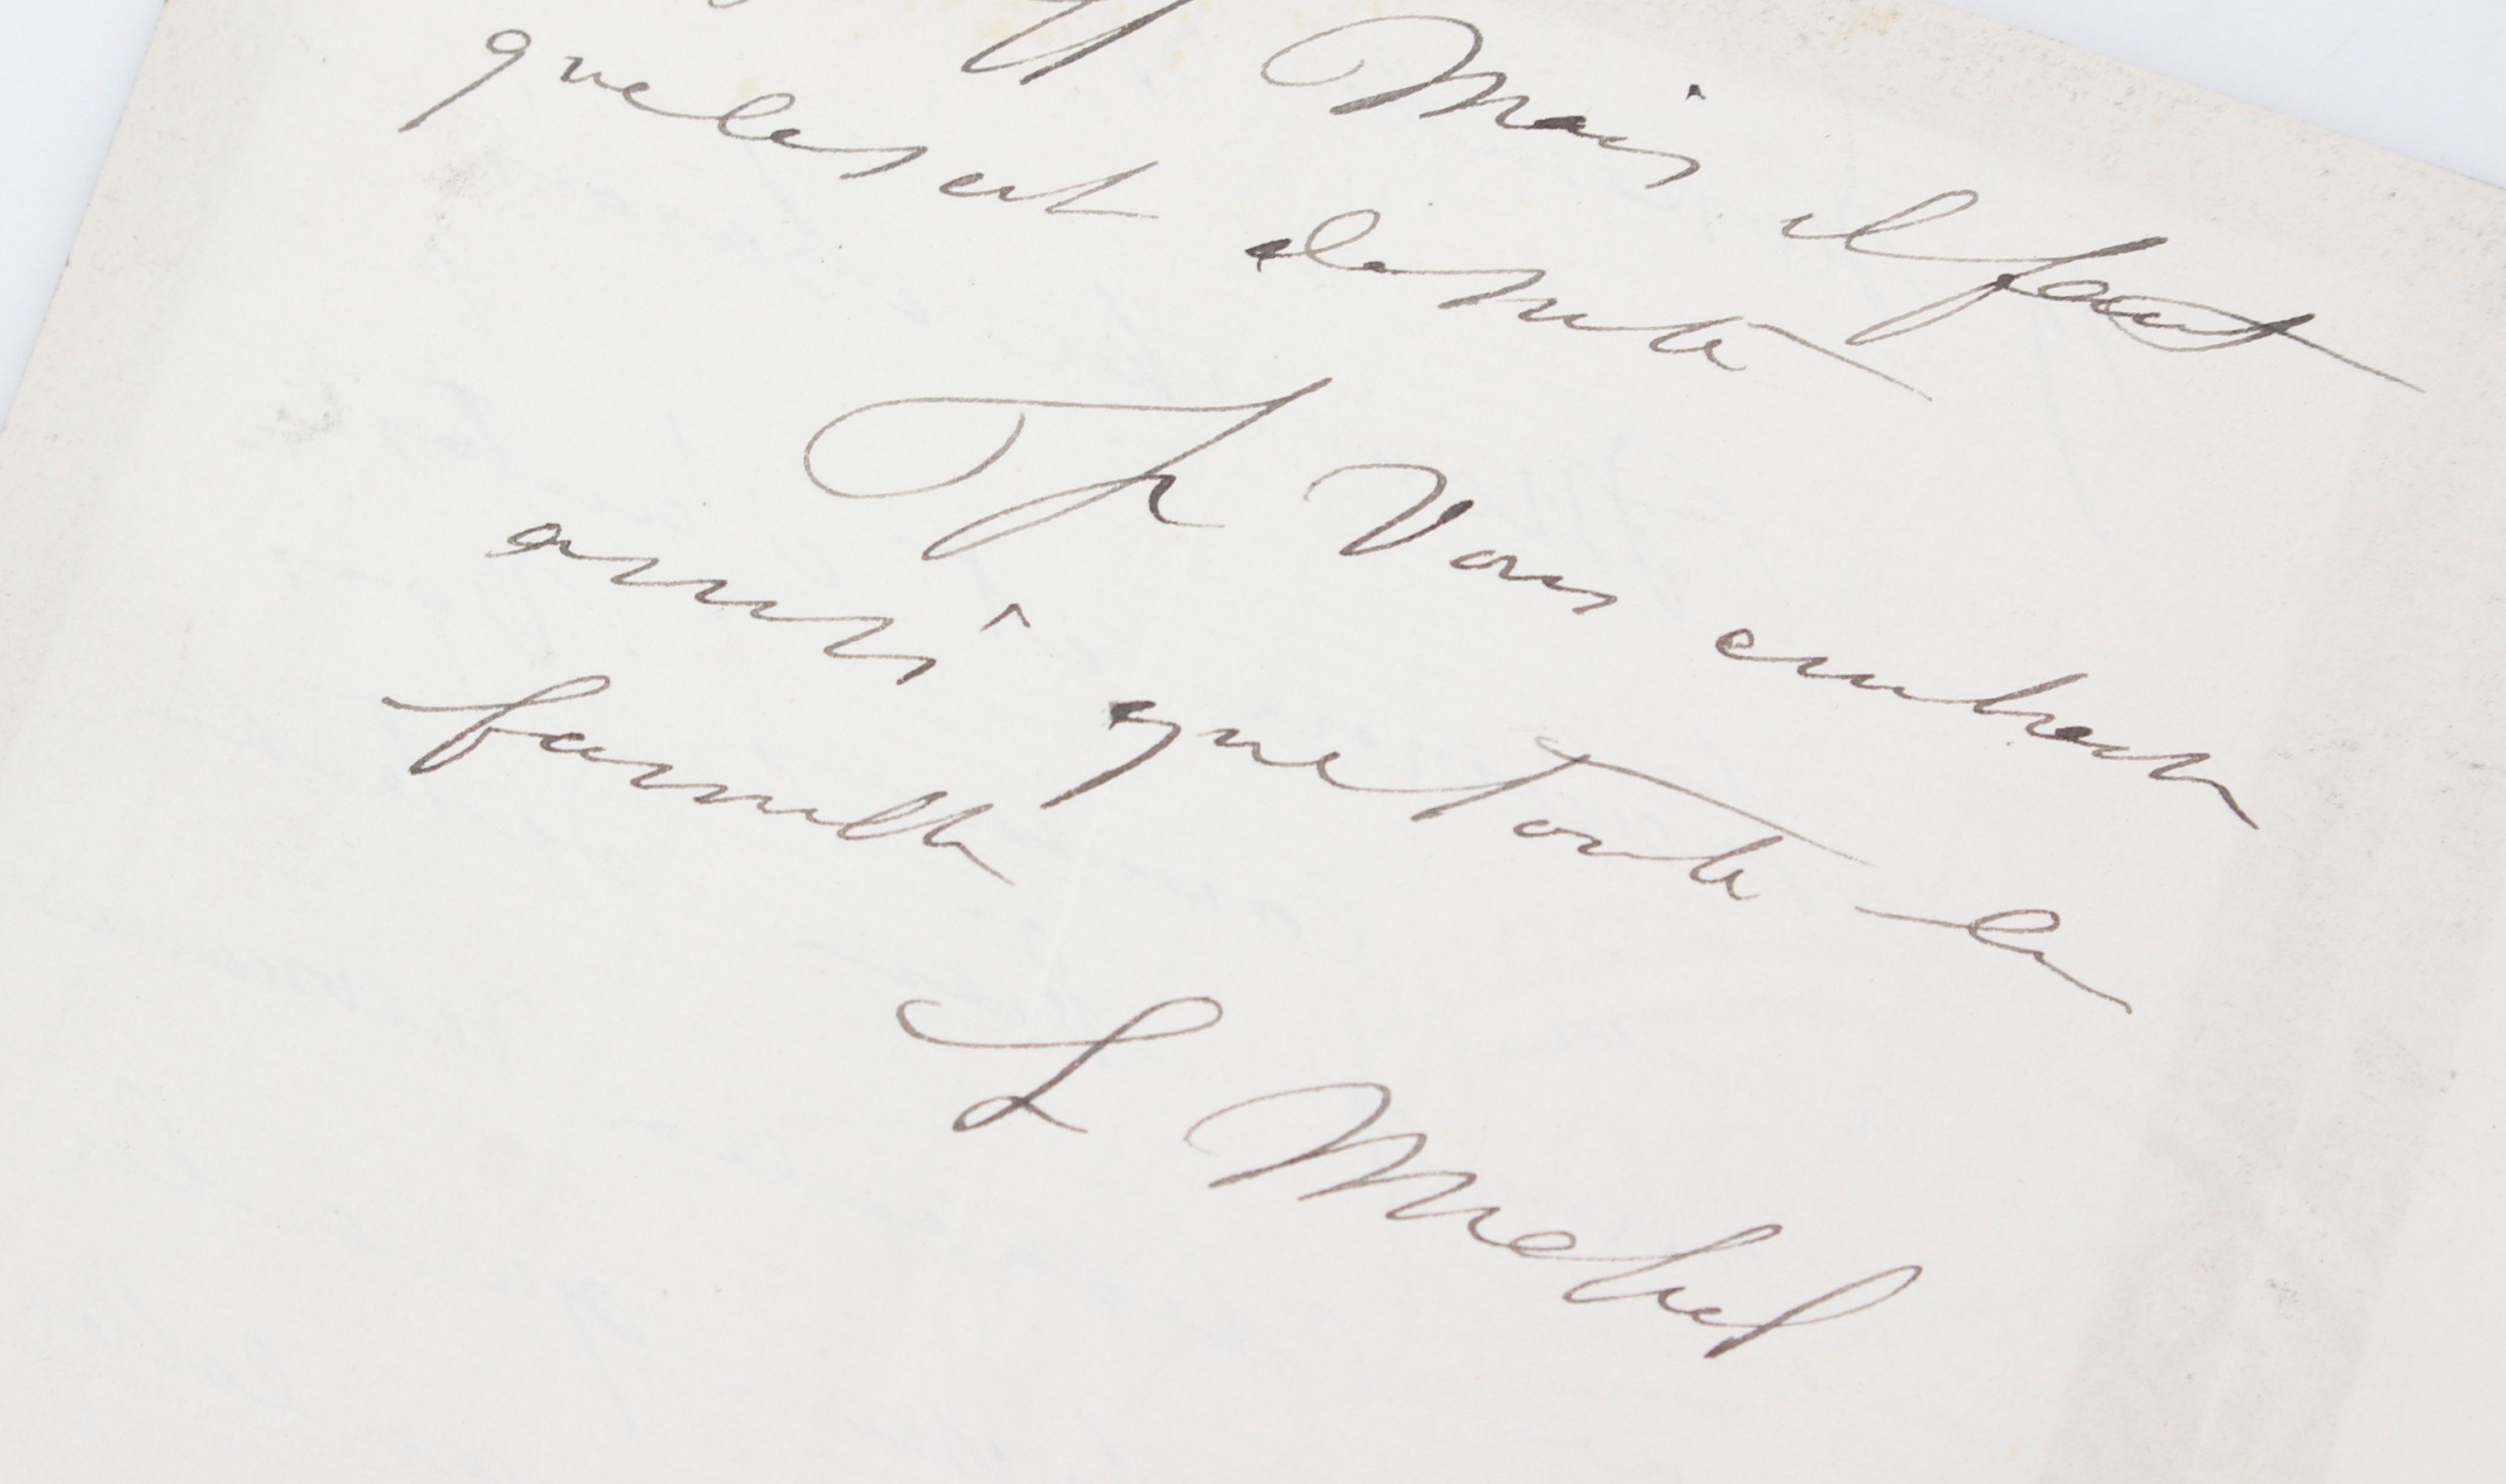 Mais il faut
que ce soit de suite
Je vous embrasse
ainsi que toute la
famille
L Michel